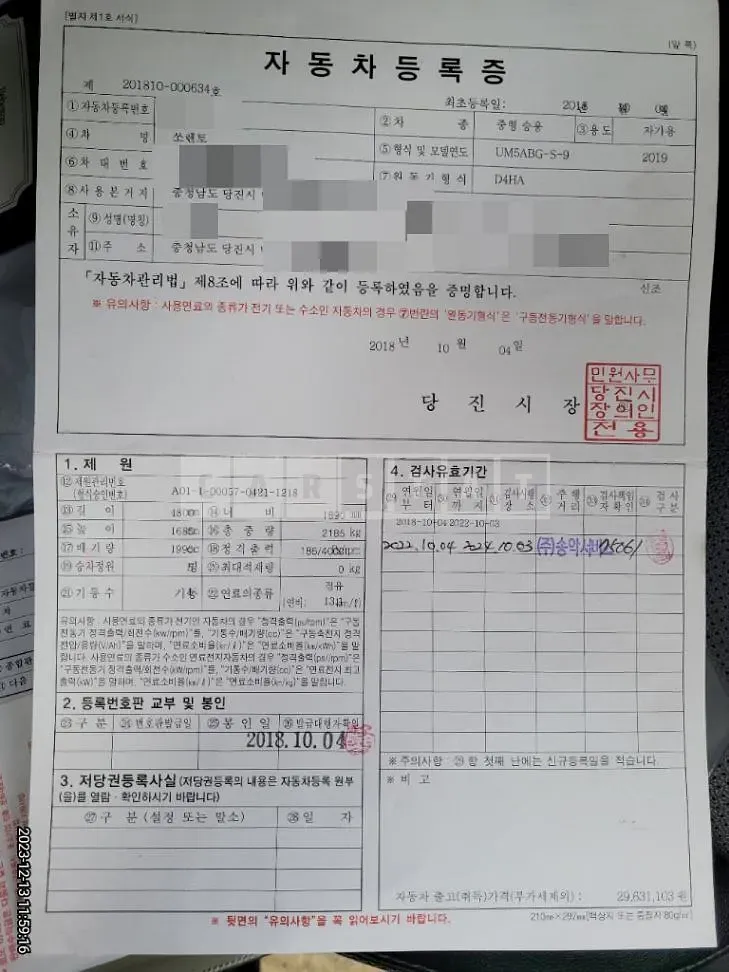 [별지 제1호 서식]
(앞 쪽)
자동차등록증
제 201810-000634호
최초등록일: 2018년
①자동차등록번호 ②차 종 중형 승용 ③용도 자가용
④차 명 쏘렌토 ⑤형식 및 모델연도 UM5ABG-S-9 2019
⑥차 대 번 호 ⑦원 동 기 형 식 D4HA
⑧사 용 본 거 지 충청남도 당진시
소유자 ⑨성명(명칭)
⑪주 소 충청남도 당진시
「자동차관리법」 제8조에 따라 위와 같이 등록하였음을 증명합니다.
신조
※ 유의사항 : 사용연료의 종류가 전기 또는 수소인 자동차의 경우 ⑦번란의 '원동기형식'은 '구동전동기형식'을 말합니다.
2018 년 10 월 04 일
당 진 시 장
민원사무
당진시
장의인
전용
1. 제 원
⑫제원관리번호 (형식승인번호) A01-1-00057-0421-1218
⑬길 이 4800 ⑭너 비 1890
⑮높 이 1685 ⑯총 중 량 2185 kg
⑰배 기 량 1995 ⑱정 격 출 력 186/4000
⑲승차정원 ⑳최대적재량 0 kg
㉑기 통 수 ㉒연료의종류 경유
(연비: 13.3 km/ℓ)
유의사항 : 사용연료의 종류가 전기인 자동차의 경우 "정격출력(ps/rpm)"은 "구동
전동기 정격출력/회전수(kw/rpm)"를, "기통수/배기량(cc)"은 "구동축전지 정격
전압/용량(V/Ah)"을 말하며, "연료소비율(㎞/ℓ)"은 "연료소비율(㎞/kWh)"을 말
합니다. 사용연료의 종류가 수소인 연료전지자동차의 경우 "정격출력(ps/rpm)"은
"구동전동기 정격출력/회전수(kW/rpm)"를, "기통수/배기량(cc)"은 "연료전지 최고
출력(kW)"을 말하며, "연료소비율(㎞/ℓ)"은 "연료소비율(㎞/kg)"을 말합니다.
2. 등록번호판 교부 및 봉인
㉓구 분 ㉔번호판발급일 ㉕봉 인 일 ㉖발급대행자확인
2018.10.04
3. 저당권등록사실 (저당권등록의 내용은 자동차등록 원부
(을)를 열람ㆍ확인하시기 바랍니다)
㉗구 분 (설정 또는 말소) ㉘일 자
4. 검사유효기간
㉙연월일부터 ㉚연월일까지 ㉛검사시행장소 ㉜주행거리 ㉝검사책임자확인 ㉞검사구분
2018-10-04 2022-10-03
2022.10.04 2024.10.03 (주)송악서비스
※주의사항 : ㉙항 첫째 난에는 신규등록일을 적습니다.
※ 비 고
자동차 출고(취득)가격(부가세제외) : 29,631,103 원
※ 뒷면의 "유의사항"을 꼭 읽어보시기 바랍니다.
210㎜×297㎜[백상지 또는 중질지 80g/㎡]
2023-12-13 11:59:16